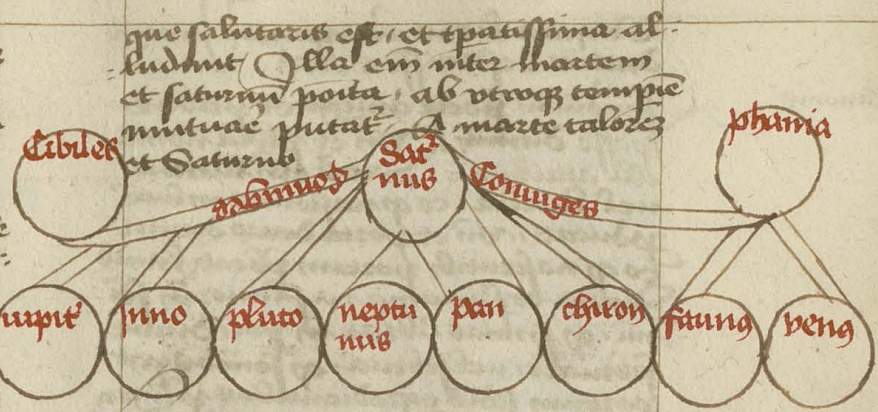 que salutaris est, et tp̄atissima al-
ludunt, Illa em̄ inter martem
et saturnū poita, ab vtroqꝫ tempiē
mutuare putat᷑. A marte calorē
et Saturno
Cibiles
Sat᷑
nus
phania
Coniuges
iupit᷑
juno
pluto
neptu
nus
pan
chiron
faunꝰ
venꝰ